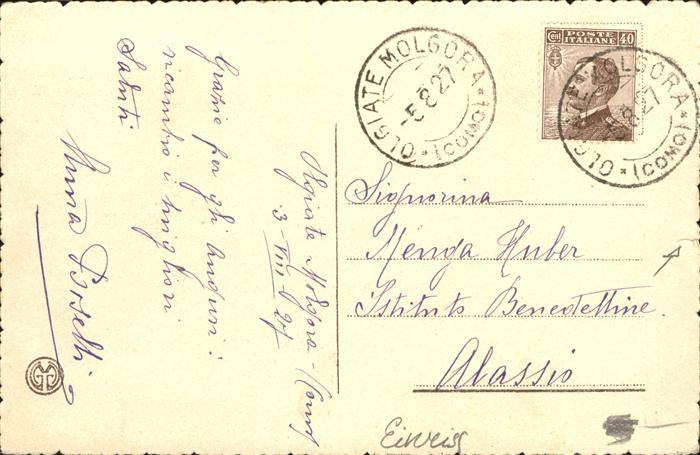 Olgiate Molgora - (Como)
3 - VIII - 27
Grazie per gli auguri!
ricambio i migliori
Saluti
Boselli
OLGIATE MOLGORA * (COMO) *
-5.8.27
POSTE
ITALIANE
Cent 40
OLGIATE MOLGORA * (COMO) *
8.27
Signorina
Menga Huber
Istituto Benedettine
Alassio
Eiweiss